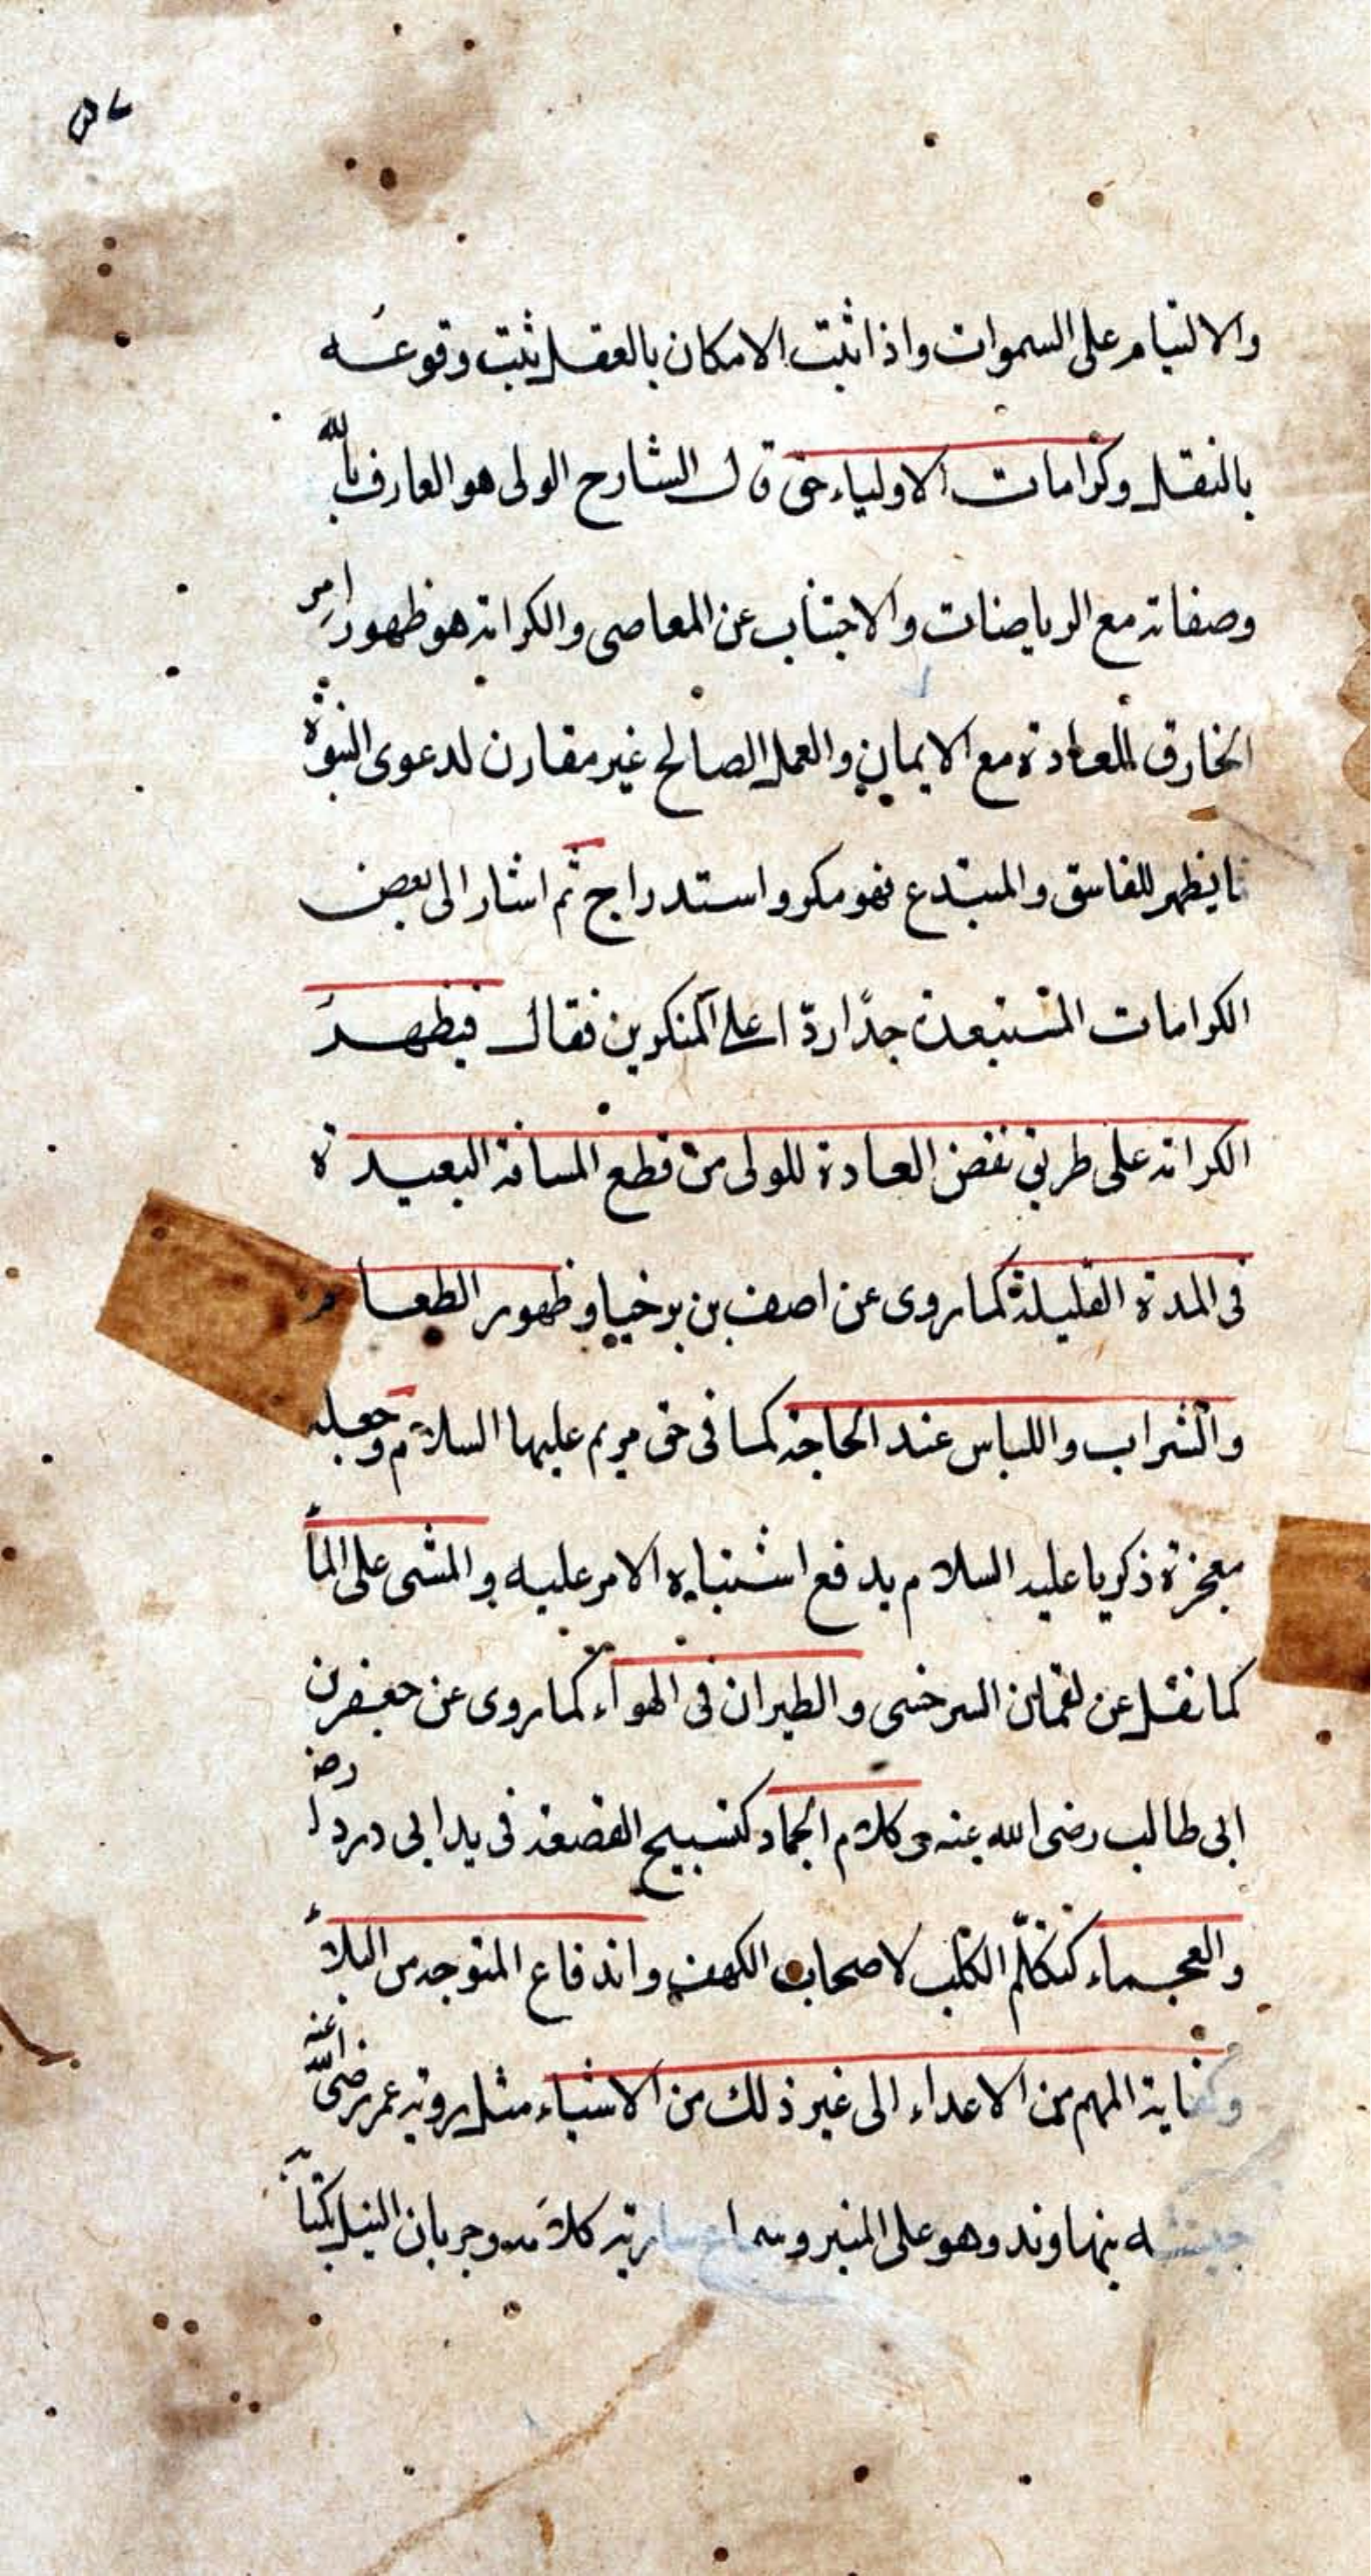 والالتيام على السموات واذا ثبت الامكان بالعقل يثبت وقوعه
بالنقل وكرامات الاولياء حق قال الشارح الولى هو العارف بالله
وصفاته مع الرياضات والاجتناب عن المعاصى والكرامة هو ظهور امر
الخارق للعادة مع الايمان والعمل الصالح غير مقارن لدعوى النبوة
ما يظهر للفاسق والمبتدع فهو مكر واستدراج ثم اشار الى بعض
الكرامات المستبعدة جدًا ردّا على المنكرين فقال فيظهر
الكرامة على طريق نقض العادة للولى من قطع المسافة البعيدة
فى المدة القليلة كما روى عن اصف بن برخيا وظهور الطعام
والشراب واللباس عند الحاجة كما فى حق مريم عليها السلام وجعله
معجزة ذكريا عليه السلام يدفع اشتباه الامر عليه والمشى على الماء
كما نقل عن لقمان السرخسى والطيران فى الهواء كما روى عن جعفر بن
ابى طالب رضى الله عنه وكلام الجماد كتسبيح القصعة فى يد ابى دردا رضـ
والعجماء كتكلّم الكلب لاصحاب الكهف واندفاع المتوجه من البلاء
وكفاية المهم من الاعداء الى غير ذلك من الاشياء مثل رؤية عمر رضى الله عنه
جيشه بنهاوند وهو على المنبر وسماع سارية كلامه وجريان النيل بكتاب